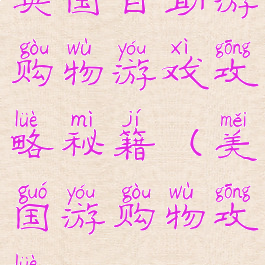 英国自助游
gòu wù yóu xì gōng
购物游戏攻
lüè mì jí měi
略秘籍（美
guó yóu gòu wù gōng
国游购物攻
lüè